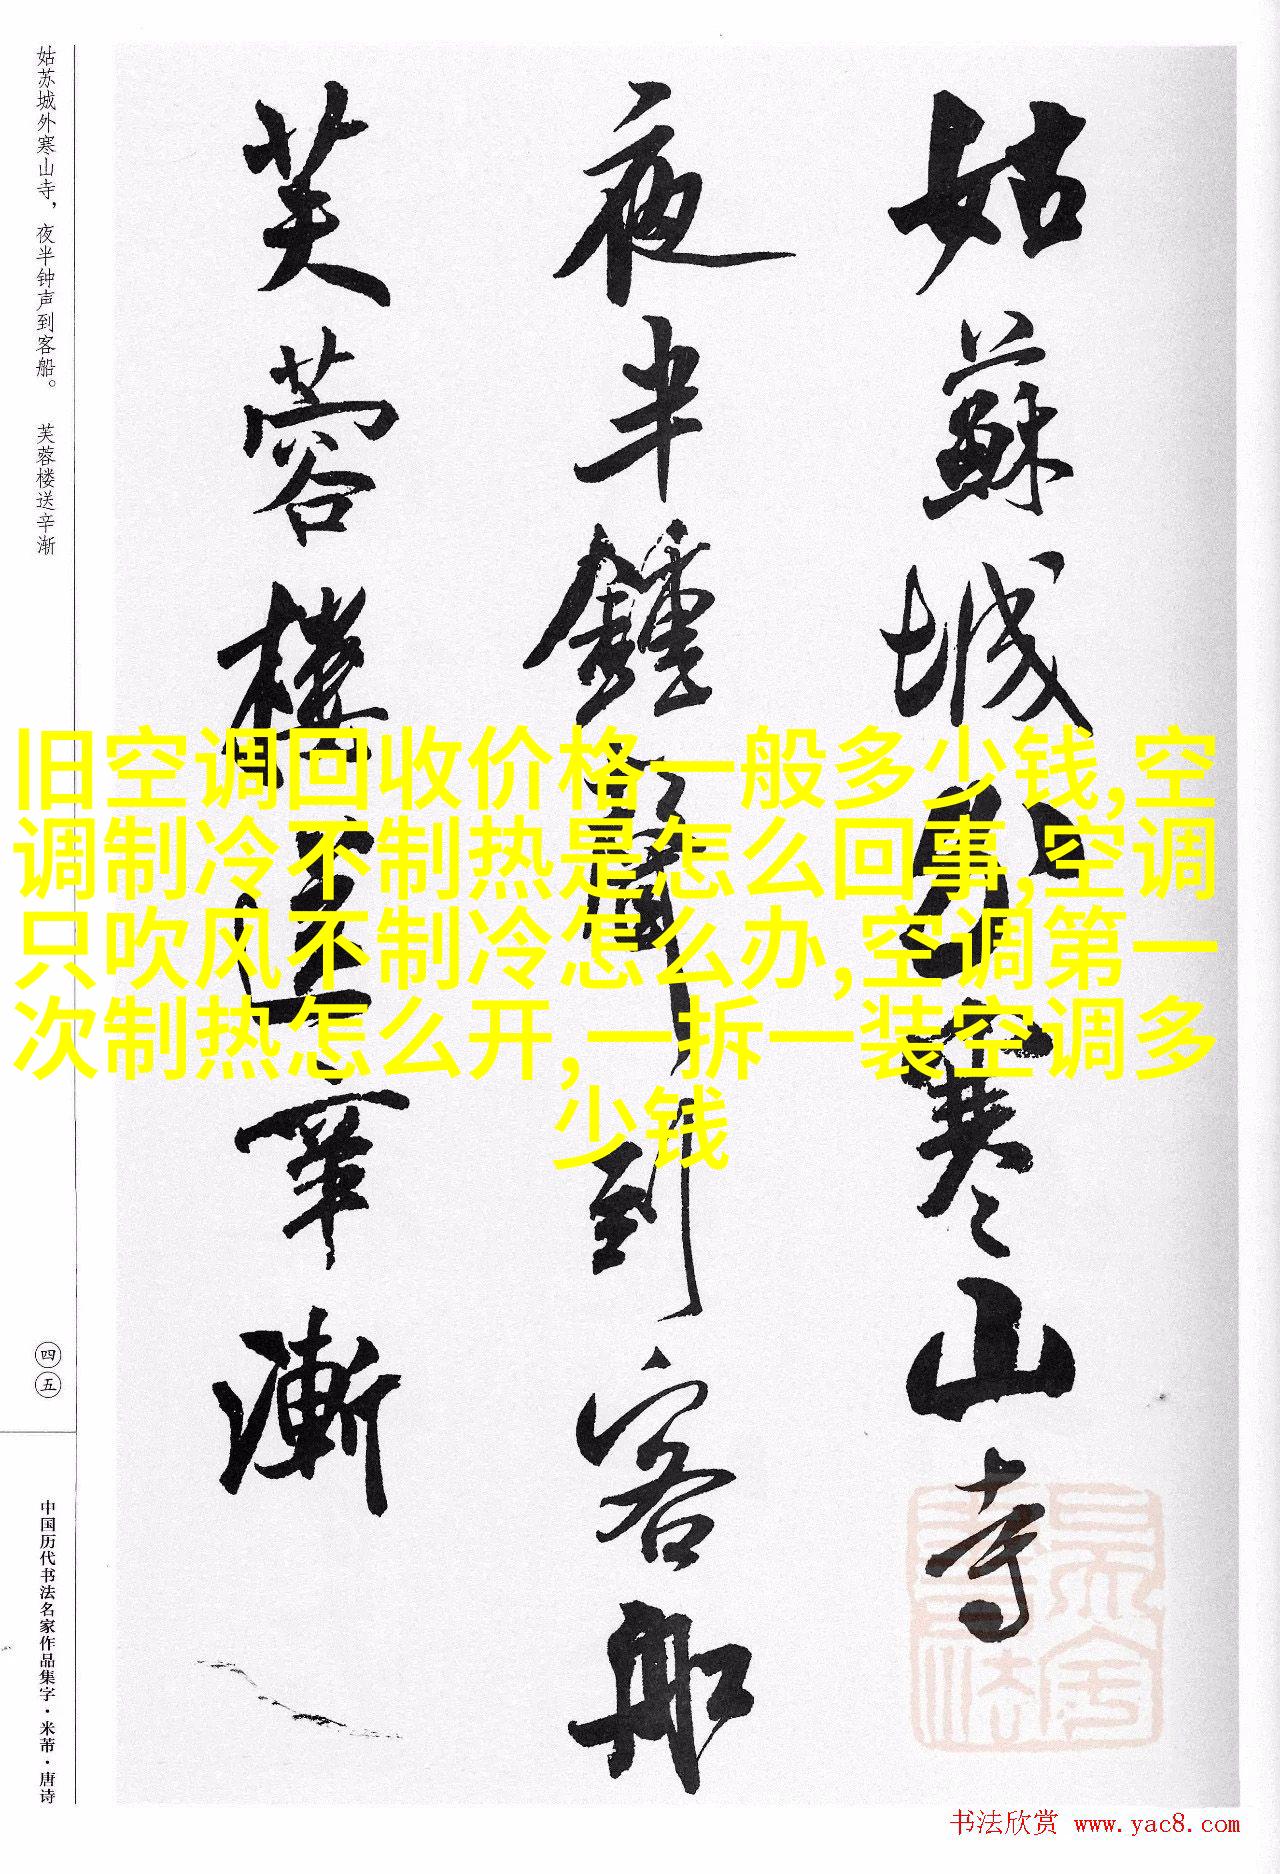 姑苏城外寒山寺，夜半钟声到客船。 芙蓉楼送辛渐
姑蘇城外寒山寺
夜半鍾聲到客船
芙蓉樓送辛漸
旧空调回收价格一般多少钱,空
调制冷不制热是怎么回事,空调
只吹风不制冷怎么办,空调第一
次制热怎么开,一拆一装空调多
少钱
四五
中国历代书法名家作品集字·米芾·唐诗
书法欣赏 www.yac8.com